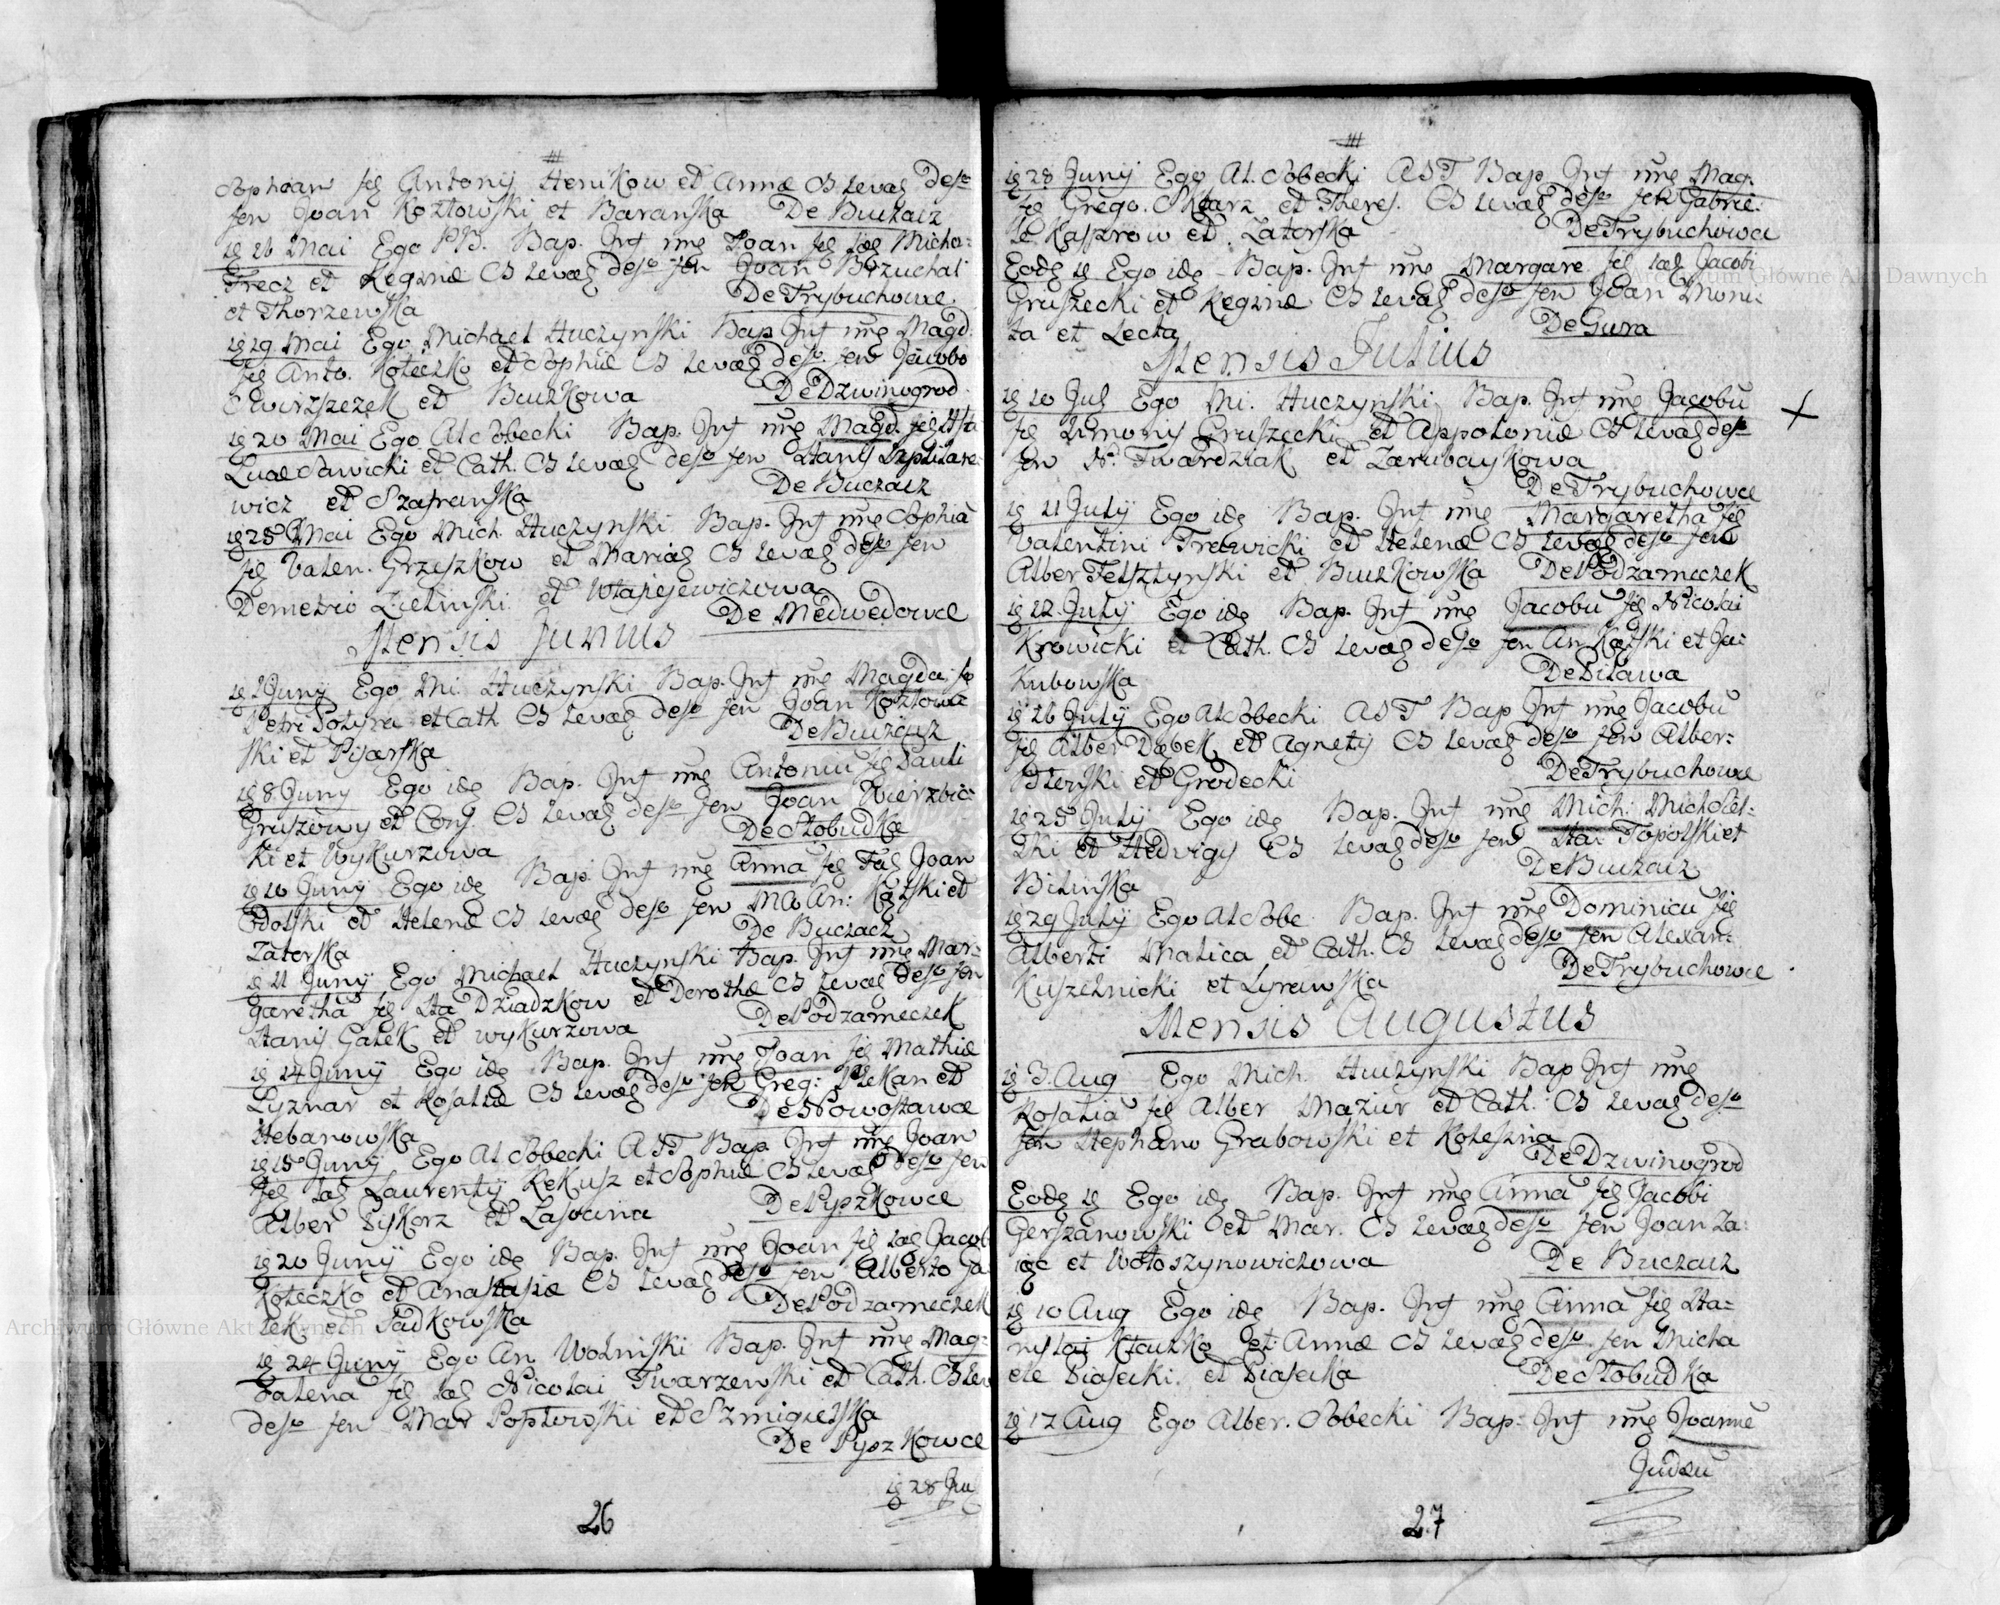 Sophiam filg Antonij Henikow et Annæ CS levag deso
fen Joan Kozłowski et Baranska De Buczacz
ig 26 Mai Ego PP. Bap. Inf nmg Joan filg lag Micha:
Frecz et Reginæ CS levag deso fen Joan Brzuchal
et Thorzewska De Trybuchowce
ig 29 Mai Ego Michael Huczynski Bap Inf nmg Magd.
filg Anto. Koteczko et Sophiæ CS levag deso fen Jacobo
Swirszczek et Buczkowa De Dzwinogrod
ig 20 Mai Ego Al Sobecki Bap. Inf nmg Magd. filg
Lucæ Sawicki et Cath. CS levag deso fen Stanij
wicz et Szafranska De Buczacz
ig 25 Mai Ego Mich. Huczynski Bap. Inf nmg Sophia
filg Valen. Grzeszkow et Mariag CS levag deso fen
Demetrio Zielinski et Wtasiejewiczowa
De Medwedowce
Mensis Junius
ig 1 Junij Ego Mi. Huczynski Bap. Inf nmg Magda: fi
Petri Potyra et Cath CS levag deso fen Joan Kozłowe
ski et Pisarska De Buczacz
ig 8. Junij Ego idg Bap. Inf nmg Antoniu filg Pauli
Gruszowy et Conj. CS levag deso fen Joan Wierzbic:
ki et Wykurzowa De Slobudka
ig 10 Junij Ego idg Bap. Inf nmg Anna filg Fag Joan
Podolski et Helenæ CS levag deso fen M An: Kąski et
Zatorska De Buczacz
ig 11 Junij Ego Michael Huczynski Bap. Inf nmg Mar:
garetha filg Sta Dziadzkow et Dorothæ CS levag deso fen
Stanij Gałek et Wykurzowa De Podzameczek
ig 14 Junij Ego idg Bap. Inf nmg Joan filg Mathiæ
Lyznar et Rosaliæ CS levag deso fen Greg: Slekan et
Hebanowska De Nowostawce
ig 15 Junij Ego Al Sobecki AST Bap. Inf nmg Joan
filg lag Laurentij Rekusz et Sophiæ CS levag deso fen
Alber Piskorz et Lasocina De Pyszkowce
ig 20 Junij Ego idg Bap. Inf nmg Joan filg lag Jacob
Koteczko et Anastasiæ CS levag deso fen Alberto Ja
lek et Sadkowska De Podzameczek
ig 24 Junij Ego An Wolniski Bap. Inf nmg Mag=
dalena filg lag Nicolai Twarzewski et Cath. CS lev
deso fen Mar Poplewski et Szmigielska
De Pyszkowce
ig 28 Ju
26
ig 28 Junij Ego Al. Sobecki AST Bap. Inf nmg Mag.
filg Grego. Sklarz et Theres. CS levag deso fen Gabrie.
le Kasprow et Zatorska De Trybuchowce
Eodg ig Ego idg Bap. Inf nmg Margare filg lag Jacobi
Gruszecki et Reginæ CS levag deso fen Joan Monu:
ta et Lecta De Gura
Mensis Julius
ig 10 Jul Ego Mi. Huczynski Bap. Inf nmg Jacobu
filg Simonij Gruszecki et Appoloniæ CS levag deso
fen N. Twardziak et Zarubaykowa
De Trybuchowce
ig 11 July Ego idg Bap. Inf nmg Margaretha filg
Valentini Trewicki et Helenæ CS levag deso fen
Alber Felsztynski et Buczkowska De Podzameczek
ig 12. July Ego idg Bap. Inf nmg Jacobu filg Nicolai
Krowicki et Cath. CS levag deso fen An Kąski et Ja:
kubowska De Pilawa
ig 26 July Ego Al Sobecki AST Bap Inf nmg Jacobu
filg Alber Dąbek et Agnetij CS levag deso fen Alber:
Bilenski et Grodecki De Trybuchowce
ig 25 July Ego idg Bap. Inf nmg Mich: Michałel:
ski et Hedvigij CS levag deso fen Stai Topolski et
Bilinska De Buczacz
ig 29 July Ego Al Sobe. Bap. Inf nmg Dominicu filg
Alberti Matica et Cath. CS levag deso fen Alexan:
Kuszelnicki et Lyrawska De Trybuchowce
Mensis Augustus
ig 3. Aug Ego Mich. Huczynski Bap Inf nmg
Rosalia filg Alber Maziur et Cath. CS levag deso
fen Stephano Grabowski et Kolesna
De Dzwinogrod
Eodg ig Ego idg Bap. Inf nmg Anna filg Jacobi
Gerszanowski et Mar. CS levag deso fen Joan Za:
iąc et Wołoszynowiczowa De Buczacz
ig 10 Aug Ego idg Bap. Inf nmg Anna filg Sta=
nislai Kłaczko et Annæ CS levag deso fen Micha
ele Piasecki et Piasecka De Slobudka
ig 17 Aug Ego Alber. Sobecki Bap: Inf nmg Joanne
Judæu
27
Archiwum Główne Akt Dawnych
Archiwum Główne Akt Dawnych